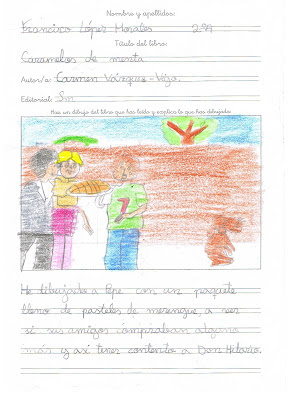 Nombre y apellidos:
Francisco López Morales 2ºA
Título del libro:
Caramelos de menta
Autor/a: Carmen Vázquez-Vigo.
Editorial: Sm
Haz un dibujo del libro que has leído y explica lo que has dibujado:
He dibujado a Pepe con un paquete
lleno de pasteles de merengue, a ver
si sus amigos compraban alguno
más y así tener contento a Don Hilario.